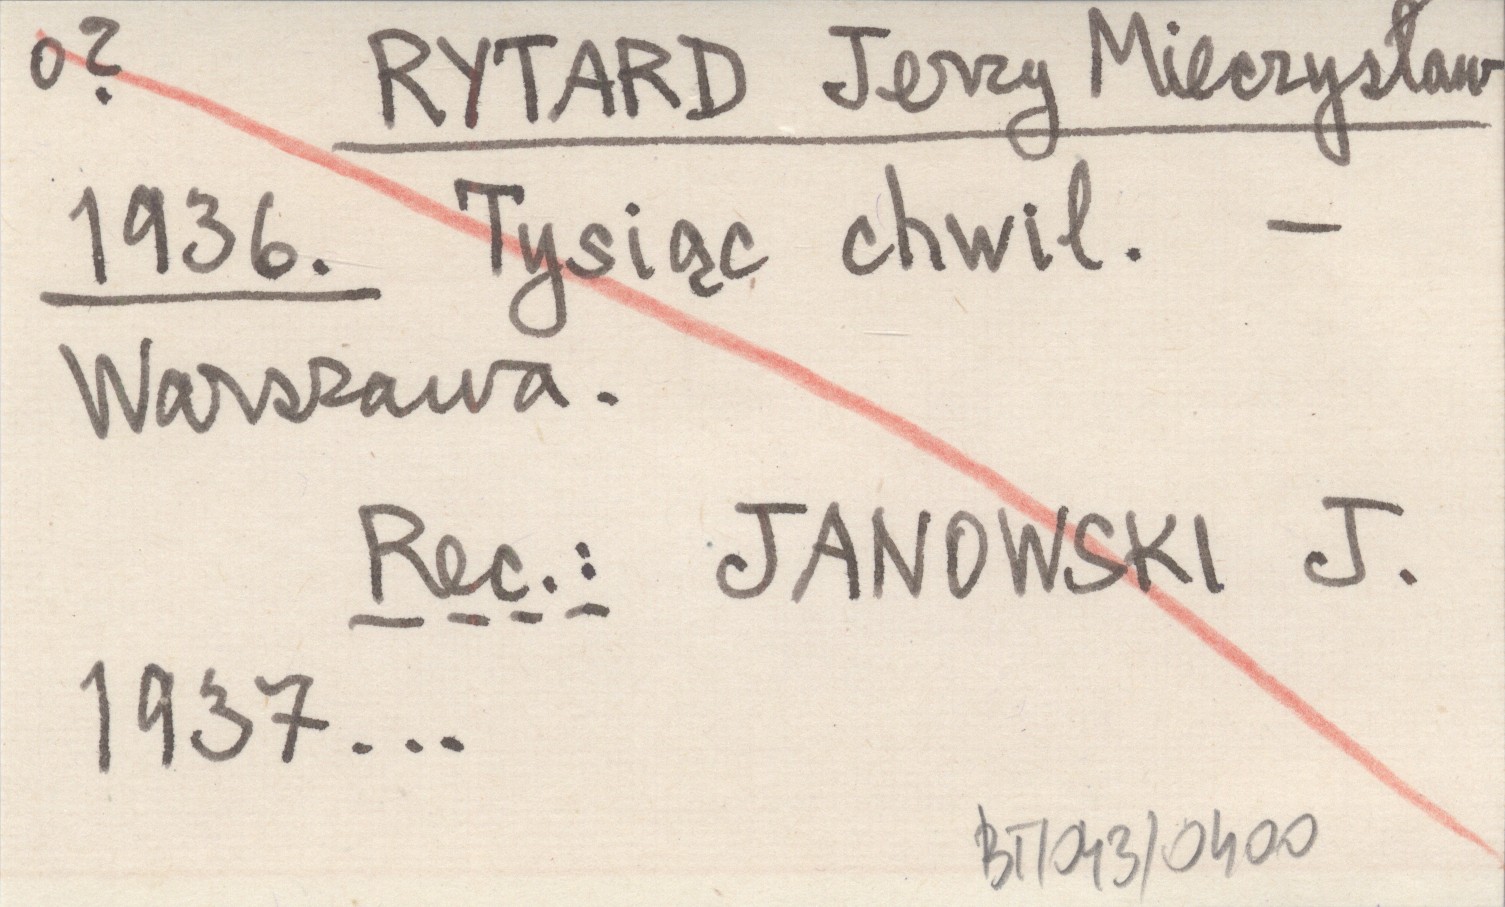 o? RYTARD Jerzy Mieczysław
1936. Tysiąc chwil. –
Warszawa.
Rec.: JANOWSKI J.
1937...
BT/043/0400